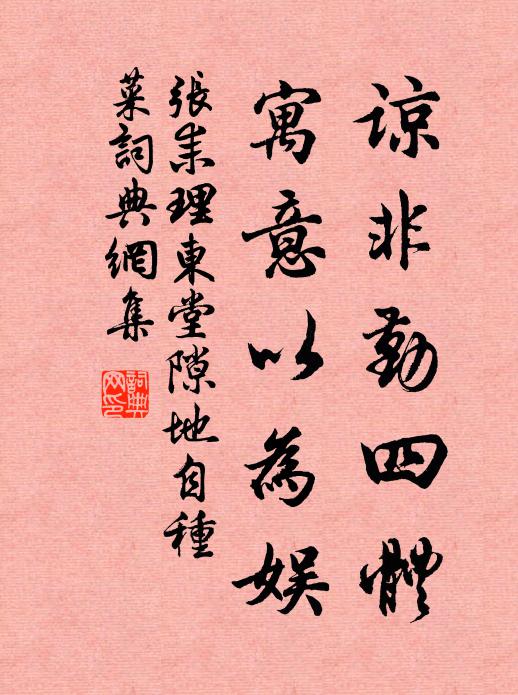 諒非勤四體
寓意以為娱
張耒理東堂隙地自種
菜詞典網集
詞典
网印